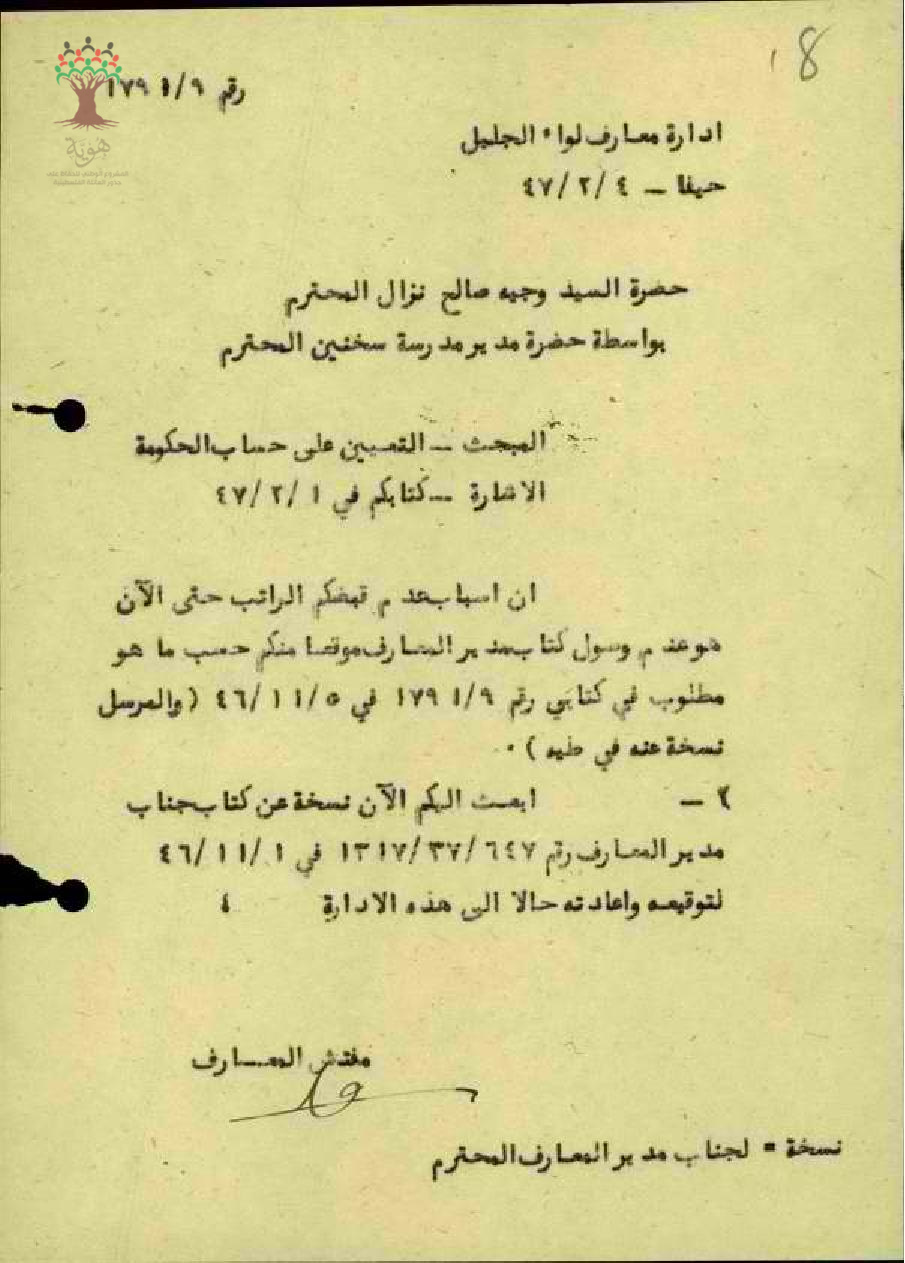 18
هوية
المشروع الوطني للحفاظ على
جذور العائلة الفلسطينية
رقم ١٧٩١/٩
ادارة معارف لواء الجليل
حيفا – ٤٧/٢/٤
حضرة السيد وجيه صالح نزال المحترم
بواسطة حضرة مدير مدرسة سخنين المحترم
المبحث – التعيين على حساب الحكومة
الاشارة – كتابكم في ٤٧/٢/١
ان اسباب عدم قبضكم الراتب حتى الآن
هو عدم وصول كتاب مدير المعارف موقعا منكم حسب ما هو
مطلوب في كتابي رقم ١٧٩١/٩ في ٤٦/١١/٥ (والمرسل
نسخة عنه في طيه) ٠
٢ – ابعث اليكم الآن نسخة عن كتاب جناب
مدير المعارف رقم ١٣١٧/٣٧/٦٤٧ في ٤٦/١١/١
لتوقيعه واعادته حالا الى هذه الادارة ٤
مفتش المعــارف
نسخة = لجناب مدير المعارف المحترم